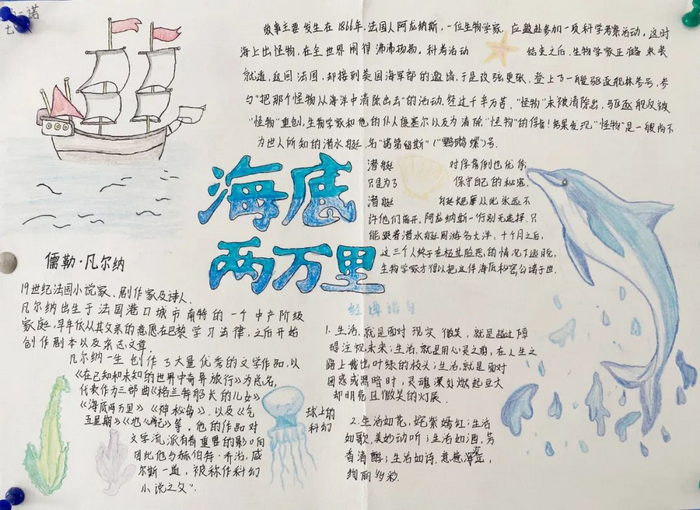 一诺
故事主要发生在1866年,法国人阿龙纳斯,一位生物学家,应邀赴参加一项科学考察活动,这时
海上出怪物,在全世界闹得沸沸扬扬,科考活动 结束之后,生物学家正准备束装
就道,返回法国,却接到美国海军部的邀请,于是改弦更张,登上了一艘驱逐舰林肯号,参
与"把那个怪物从海洋中清除出去"的活动,经过千辛万苦,"怪物"未被清除出,驱逐舰反被
"怪物"重创,生物学家和他的仆人康塞尔以及为清除"怪物"的 "怪物"是一艘尚不
为世人所知的潜水艇,名"诺第留斯"("鹦鹉螺")号.
潜艇 对俘虏倒也优待,
只是为了 保守自己的秘密,
潜艇 艇 从此永远不
许他们离开,阿龙纳斯一行别无选择,只
能跟着潜水艇周游各大洋,十个月之后,
这三个人终于在极其险恶的情况下逃脱,
生物学家才得以把这件海底秘密公诸于世.
海底
两万里
儒勒·凡尔纳
19世纪法国小说家、剧作家及诗人
凡尔纳出生于法国港口城市南特的一个中产阶级
家庭,早年依从其父亲的意愿在巴黎学习法律,之后开始
创作剧本以及杂志文章.
凡尔纳一生创作了大量优秀的文学作品,以
《在已知和未知的世界中奇异旅行》为总名,
代表作为三部曲《格兰特船长的儿女》
《海底两万里》《神秘岛》,以及《气
球上的
科幻
五星期》 等,他的作品对
文学流派有着重要的影响因
因此他与赫伯特·乔治,威
尔斯一道,被称作科幻
小说之父".
经典语句
1.生活,就是面对现实微笑,就是越过障
碍注视未来;生活,就是用心灵之剪,在人生之
路上裁出叶绿的枝头;生活,就是面对
困惑或黑暗时,灵魂深处燃起豆大
却明亮且微笑的灯展
2.生活如花,姹紫嫣红;生活
如歌,美妙动听;生活如酒,芳
香清醇;生活如诗,意境深远,
绚丽多彩.